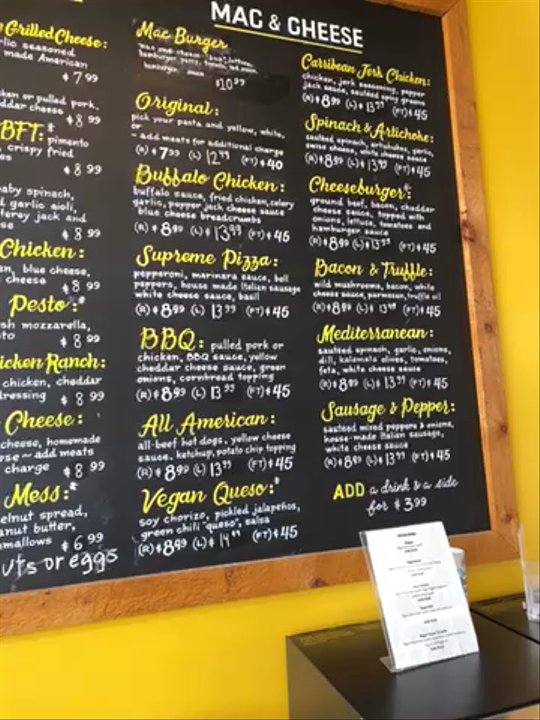 MAC & CHEESE
Grilled Cheese:
seasoned
made American
$7 99
en or pulled pork,
ddar cheese $8 99
BFT:* pimento
crispy fried
$8 99
baby spinach,
garlic aioli,
terey jack and
$8 99
Chicken:
blue cheese,
cheese $8 99
Pesto:*
sh mozzarella,
$8 99
icken Ranch:
chicken, cheddar
dressing $8 99
Cheese:
cheese, homemade
add meats
charge $8 99
Mess:*
elnut spread,
anut butter,
mallows $6 99
uts or eggs
Mac Burger
$10 99
Original:
pick your pasta and yellow, white,
or
~ add meats for additional charge
(R) $7 99 (L) 12 99 (PT) $40
Buffalo Chicken:
buffalo sauce, fried chicken, celery
garlic, pepper jack cheese sauce
blue cheese breadcrumbs
(R) $8 99 (L) $13 99 (PT) $45
Supreme Pizza:
pepperoni, marinara sauce, bell
peppers, house made Italian sausage
white cheese sauce, basil
(R) $8 99 (L) 13 99 (PT) $45
BBQ: pulled pork or
chicken, BBQ sauce, yellow
cheddar cheese sauce, green
onions, cornbread topping
(R) $8 99 (L) 13 99 (PT) $45
All American:
all-beef hot dogs, yellow cheese
sauce, ketchup, potato chip topping
(R) $8 99 (L) 13 99 (PT) $45
Vegan Queso:*
soy chorizo, pickled jalapeños,
green chili "queso", salsa
(R) $8 49 (L) $ 14 (PT) $45
Carribean Jerk Chicken:
chicken, jerk seasoning, pepper
jack sauce, sautéed spicy greens
(R) $8 99 (L) $13 99 (PT) $45
Spinach & Artichoke:
sautéed spinach, artichokes, garlic,
swiss cheese, white cheese sauce
(R) $8 99 (L) $13 99 (PT) $45
Cheeseburger:*
ground beef, bacon, cheddar
cheese sauce, topped with
onions, lettuce, tomatoes and
hamburger sauce
(R) $8 99 (L) $13 99 (PT) $45
Bacon & Truffle:
wild mushrooms, bacon, white
cheese sauce, parmesan, truffle oil
(R) $8 99 (L) $ 13 99 (PT) $45
Mediterranean:
sautéed spinach, garlic, onions,
dill, kalamata olives, tomatoes,
feta, white cheese sauce
(R) $8 99 (L) $ 13 99 (PT) $45
Sausage & Pepper:
sautéed mixed peppers & onions,
house-made Italian sausage,
white cheese sauce
(R) $8 99 (L) $ 13 99 (PT) $45
ADD a drink & a side
for $3.99